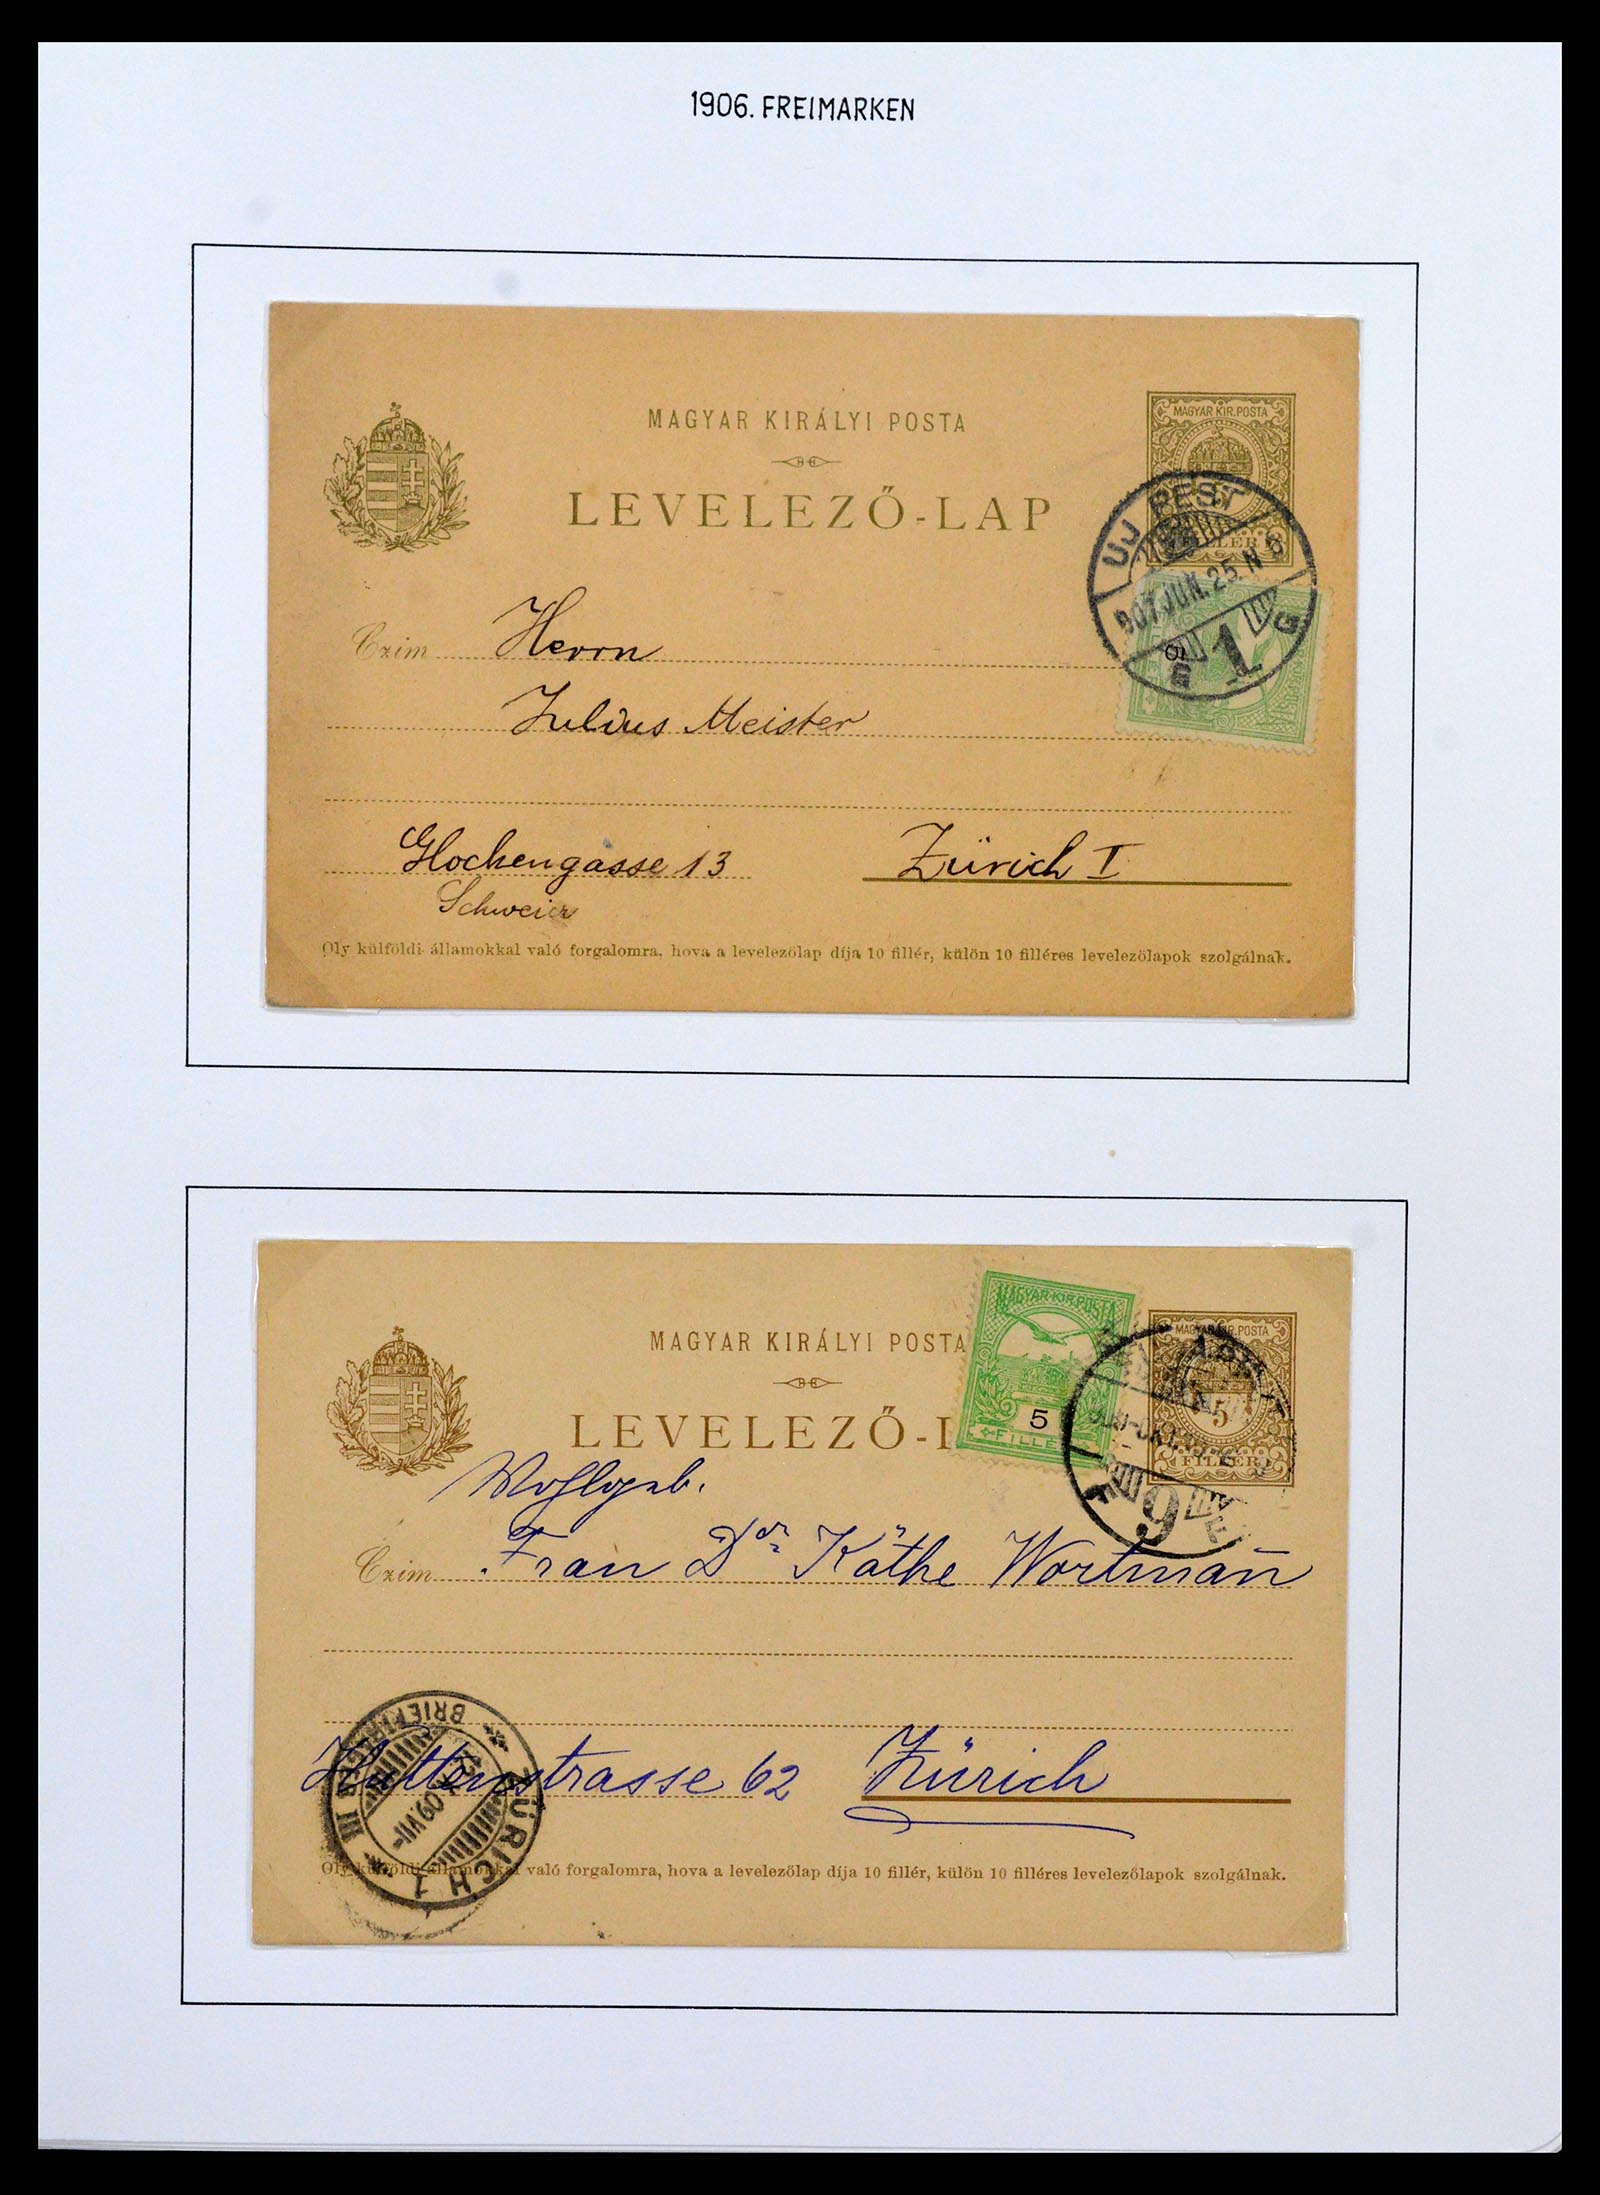 1906. FREIMARKEN
MAGYAR KIRÁLYI POSTA
MAGYAR KIR. POSTA
LEVELEZŐ-LAP
FILLÉR
UJ PEST
907. JUN. 25. N 8
1
Czim Herrn
Julius Meister
Glockengasse 13 Zürich I
Schweiz
Oly külföldi államokkal való forgalomra, hova a levelezőlap díja 10 fillér, külön 10 filléres levelezőlapok szolgálnak.
MAGYAR KIRÁLYI POSTA
MAGYAR KIR. POSTA
5
FILLÉR
MAGYAR KIR. POSTA
5
FILLÉR
LEVELEZŐ-L
9
Wohlgeb.
Czim Frau Dr Käthe Wortman̄
Huttenstrasse 62 Zürich
ZÜRICH 1
BRIEFTRÄGER III
Oly külföldi államokkal való forgalomra, hova a levelezőlap díja 10 fillér, külön 10 filléres levelezőlapok szolgálnak.